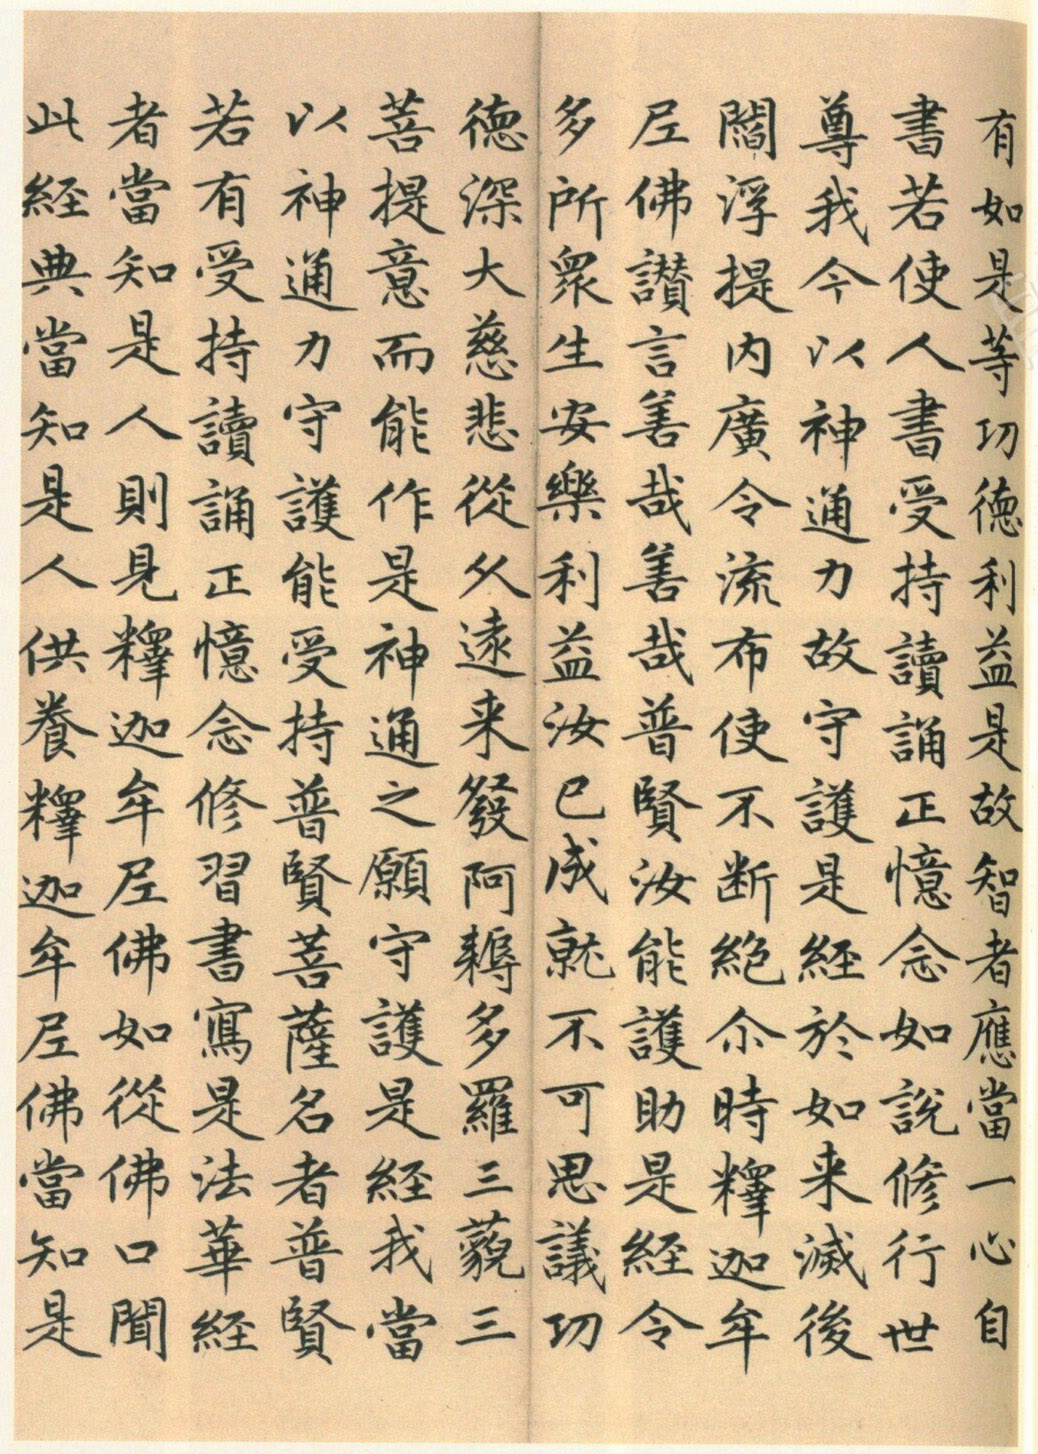 有如是等功德利益是故智者應當一心自
書若使人書受持讀誦正憶念如說修行世
尊我今以神通力故守護是經於如来滅後
閻浮提内廣令流布使不断絕尒時釋迦牟
尼佛讃言善哉善哉普賢汝能護助是經令
多所衆生安樂利益汝已成就不可思議功
德深大慈悲從久遠来發阿耨多羅三藐三
菩提意而能作是神通之願守護是經我當
以神通力守護能受持普賢菩薩名者普賢
若有受持讀誦正憶念修習書寫是法華經
者當知是人則見釋迦牟尼佛如從佛口聞
此經典當知是人供養釋迦牟尼佛當知是